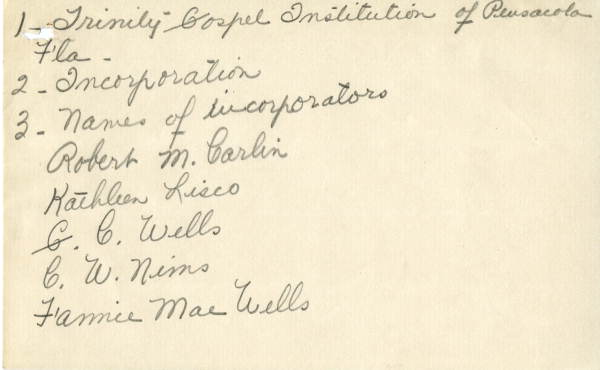 1 - Trinity Gospel Institution of Pensacola
Fla -
2 - Incorporation
3 - Names of incorporators
Robert M. Carlin
Kathleen Lisco
G. C. Wells
C. W. Nims
Fannie Mae Wells